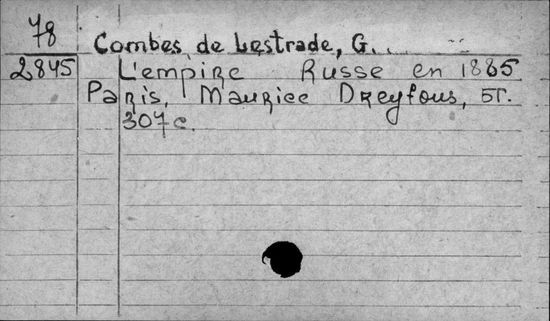 78
Combes de Lestrade, G.
2845
L'empire Russe en 1885
Paris, Maurice Dreyfous, бг.
307 с.